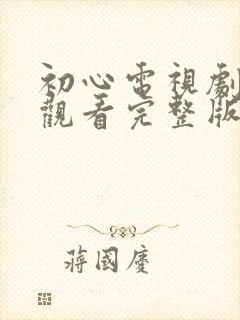 初心電視劇
觀看完整版
蔣國慶